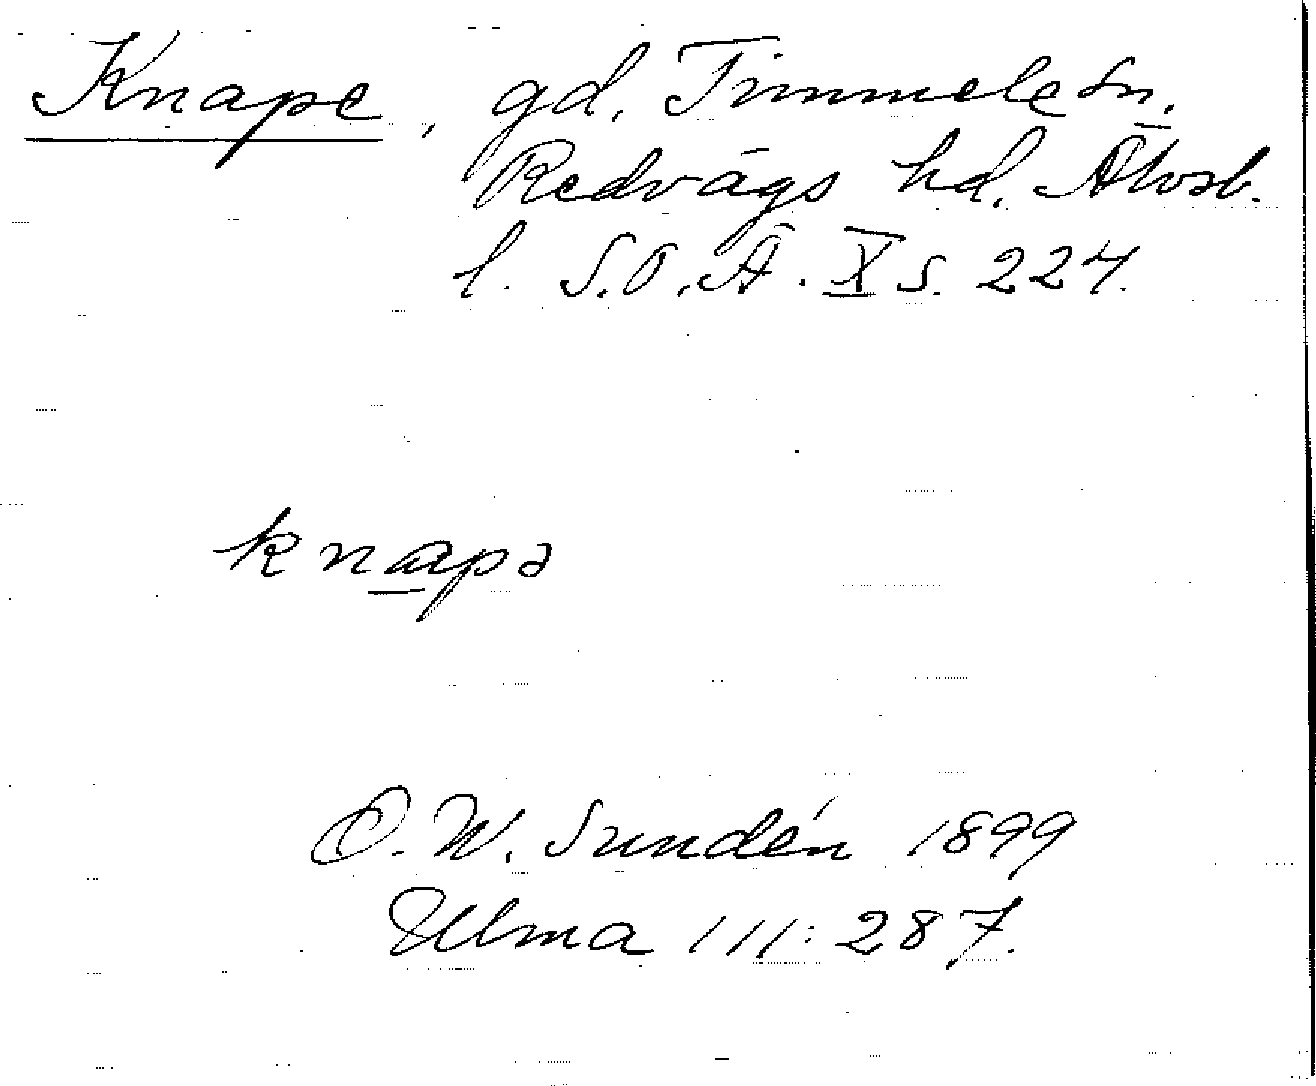 Knape, gd, Timmele sn,
Redvägs hd. Älvsb.
l. S.O.Ä. X s. 224.
knapə
O. W. Sundén 1899
Ulma 111: 287.